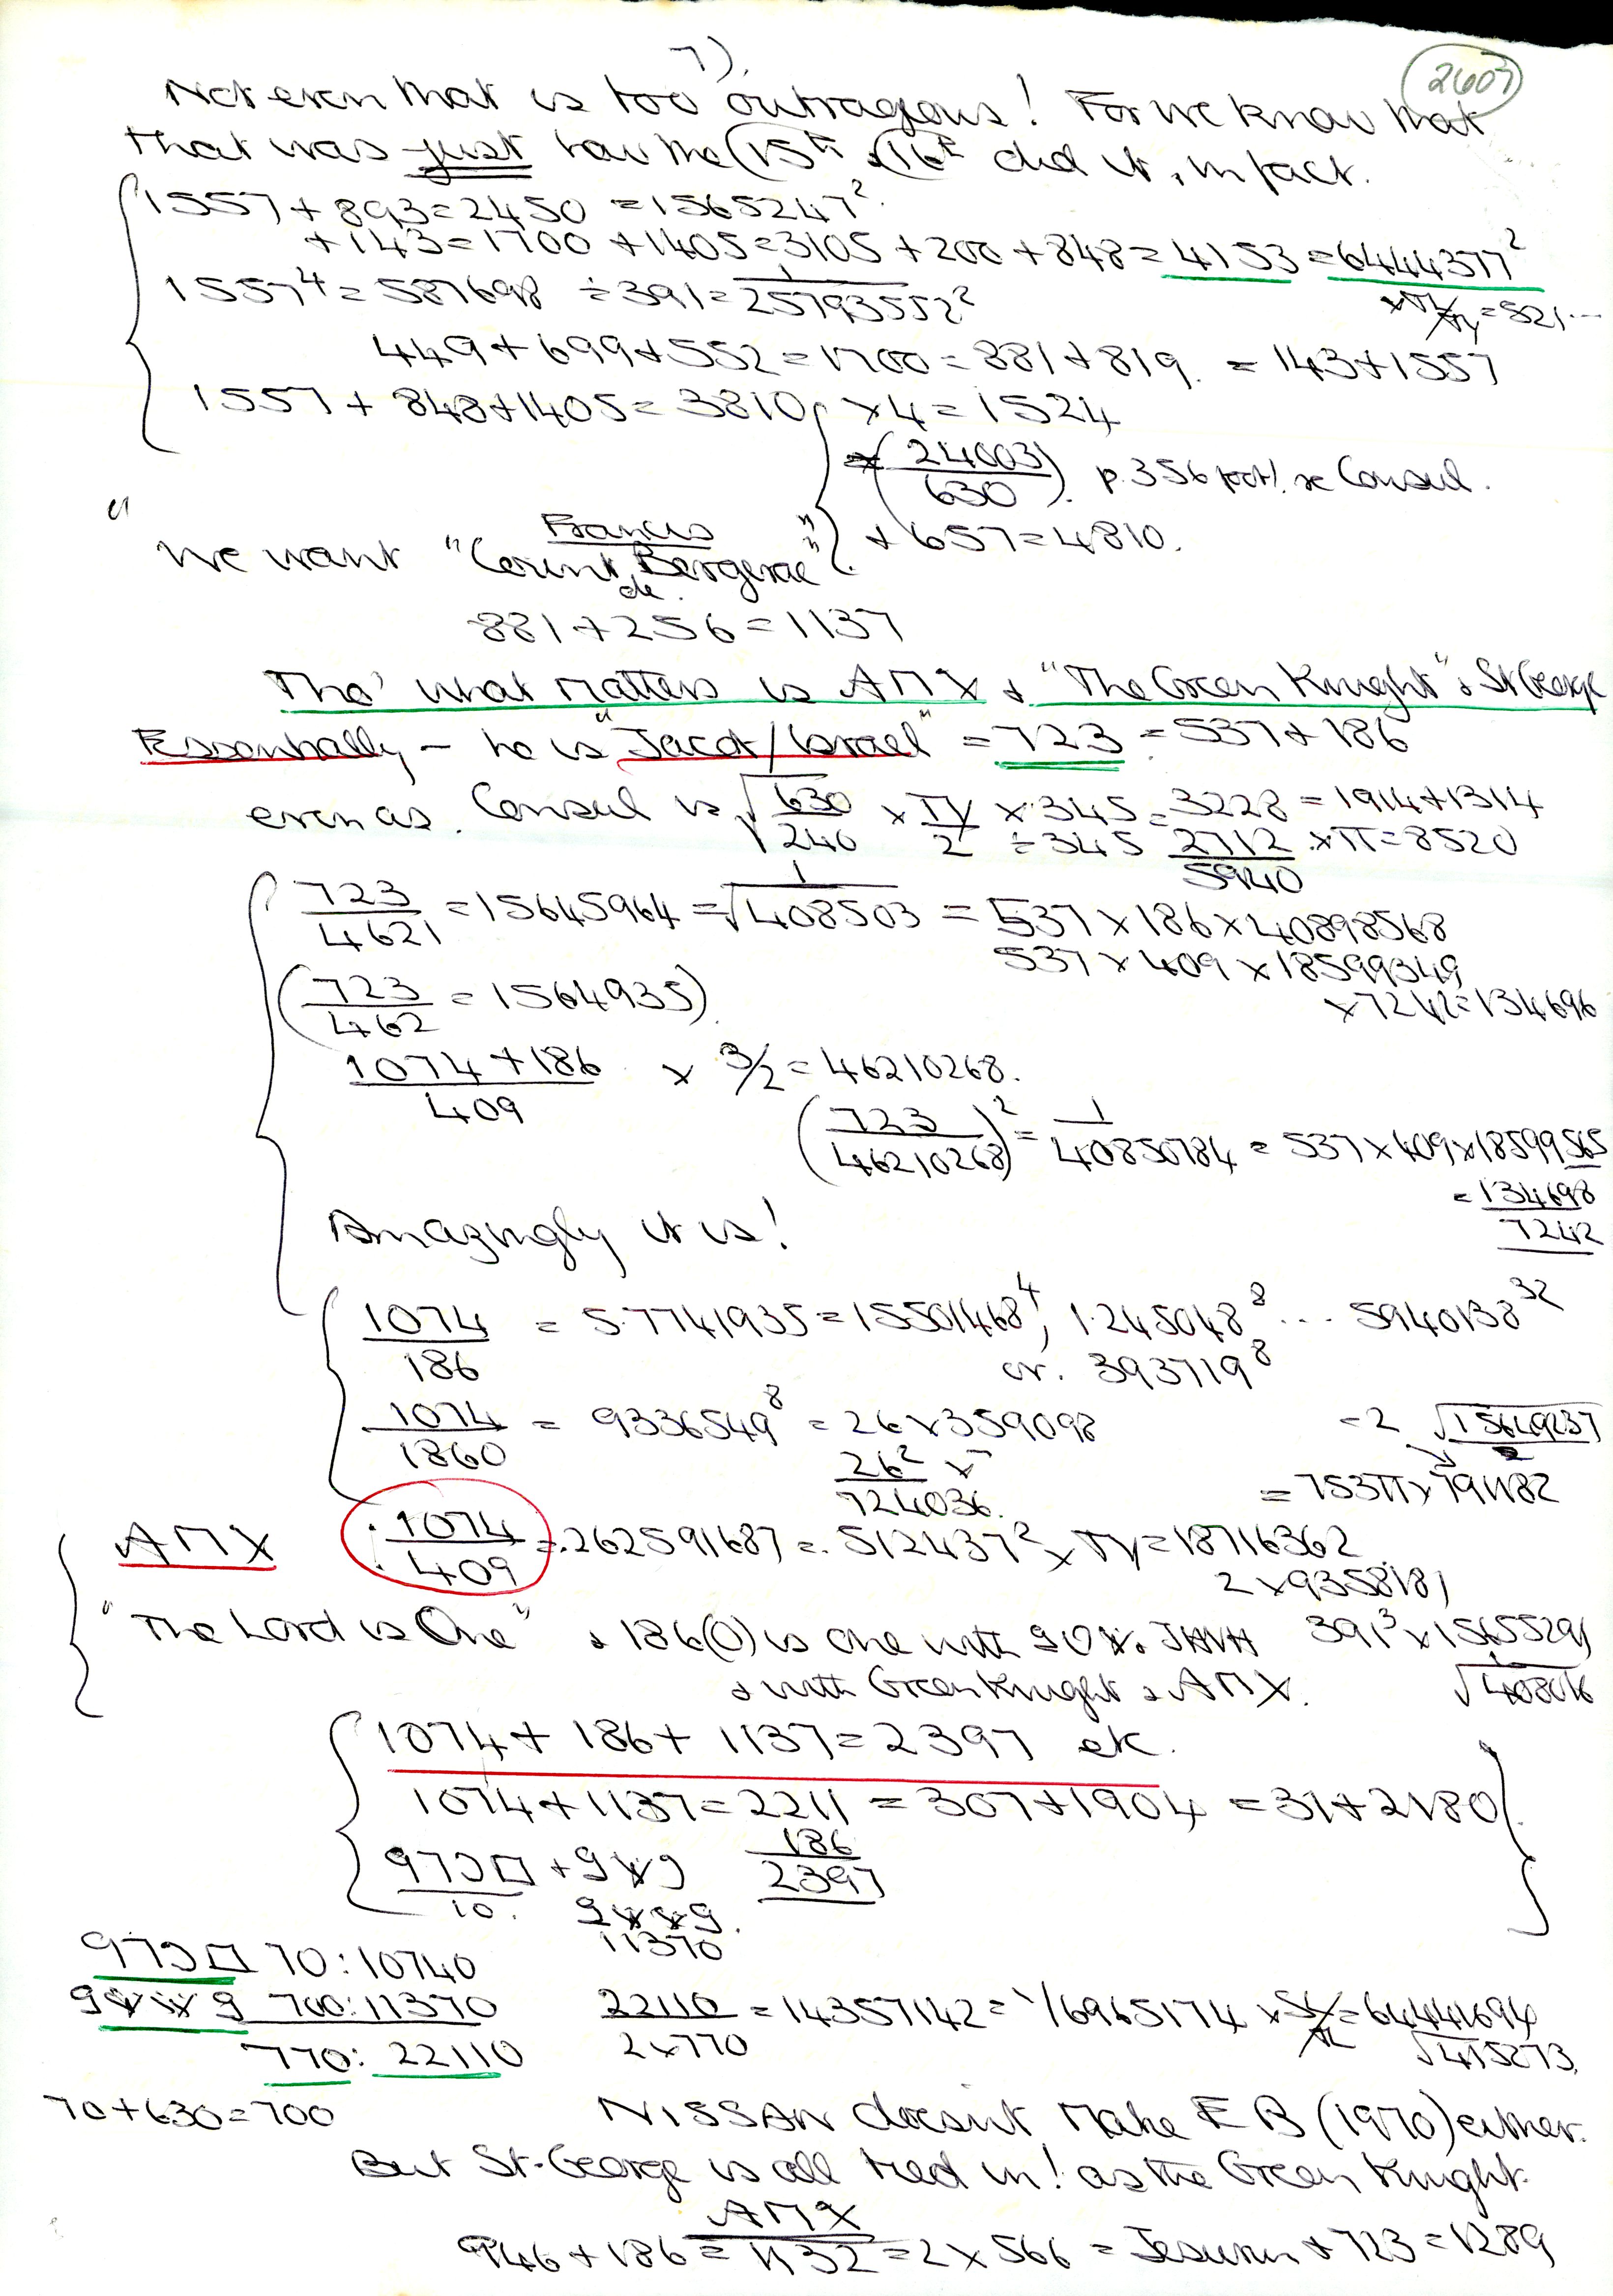 7).
2607
Not even that is too outrageous! For we know that
that was just how the 15th & 16th did it, in fact.
1557 + 893 = 2450 = 1565247²
+ 143 = 1700 + 1405 = 3105 + 200 + 848 = 4153 = 6444377²
1557⁴ = 587698 ÷ 391 = 1/25793552²
= 521...
449 + 699 + 552 = 1700 = 881 + 819. = 143 + 1557
1557 + 848 + 1405 = 3810 × 4 = 1524
(24003/630) p. 356 foot! re Consul.
+ 657 = 4810.
"We want "Count Francis de Bergerac""
881 + 256 = 1137
Tho' what matters is ΑΠΧ & "The Green Knight" & St George
Essentially – he is "Jacob/Israel" = 723 = 537 + 186
even as Consul is √630/240 × π/2 × 345 = 3228 = 1914 + 1314
÷ 345 2712/5940 × π = 8520
723/4621 = 15645964 = 1/√408503 = 537 × 186 × 40898568
537 × 409 × 18599349
× 7242 = 134696
(723/462 = 1564935)
1074 + 186/409 × 3/2 = 46210268.
(723/46210268)² = 1/40850784 = 537 × 409 × 18599565
= 134698/7242
Amazingly it is!
1074/186 = 5.7741935 = 15501468⁴, 1.245048⁸ ... 5940138³²
or. 393719⁸
1074/1860 = 9336549⁸ = 26 × 359098
26²/724036 × π
= 2 √15649237/2
= 753π × 791182
ΑΠΧ 1074/409 = .262591687 = .512437² × π = 18716362
2 × 9358181
"The Lord is One" & 186(0) is one with JHVH 391³ × 1565529
√408016
& with Green Knight & ΑΠΧ.
1074 + 186 + 1137 = 2397 etc.
1074 + 1137 = 2211 = 307 + 1904 = 31 + 2180
186
2397
10.
11370
70 : 10740
700 : 11370
770 : 22110
22110/2×770 = 14357142 = 1/6965174 = 64441694
√415273
70 + 630 = 700
NISSAN doesn't make EB (1970) either.
But St. George is all tied in! as the Green Knight.
ΑΠΧ
946 + 186 = 1132 = 2 × 566 = Jesurun + 723 = 1289